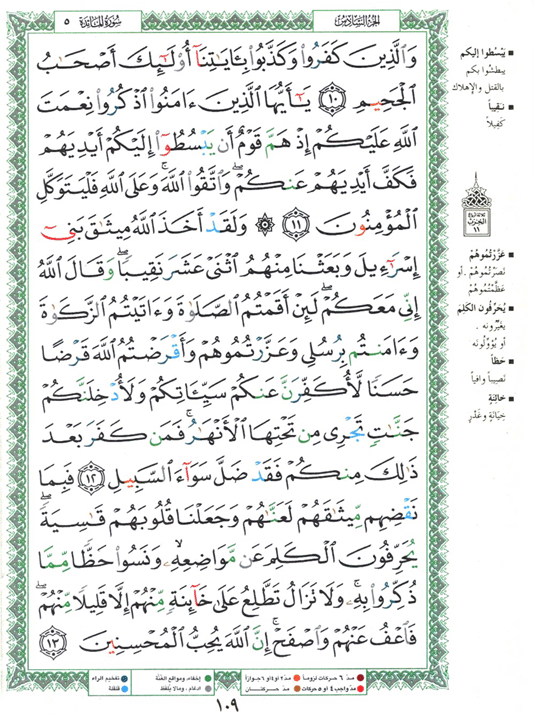 سُورَةُ المَائِدَة ٥
الجُزءُ السَّادِسُ
وَٱلَّذِينَ كَفَرُوا۟ وَكَذَّبُوا۟ بِـَٔايَـٰتِنَآ أُو۟لَـٰٓئِكَ أَصْحَـٰبُ
ٱلْجَحِيمِ ١٠ يَـٰٓأَيُّهَا ٱلَّذِينَ ءَامَنُوا۟ ٱذْكُرُوا۟ نِعْمَتَ
ٱللَّهِ عَلَيْكُمْ إِذْ هَمَّ قَوْمٌ أَن يَبْسُطُوٓا۟ إِلَيْكُمْ أَيْدِيَهُمْ
فَكَفَّ أَيْدِيَهُمْ عَنكُمْ ۖ وَٱتَّقُوا۟ ٱللَّهَ ۚ وَعَلَى ٱللَّهِ فَلْيَتَوَكَّلِ
ٱلْمُؤْمِنُونَ ١١ ۞ وَلَقَدْ أَخَذَ ٱللَّهُ مِيثَـٰقَ بَنِىٓ
إِسْرَٰٓءِيلَ وَبَعَثْنَا مِنْهُمُ ٱثْنَىْ عَشَرَ نَقِيبًا ۖ وَقَالَ ٱللَّهُ
إِنِّى مَعَكُمْ ۖ لَئِنْ أَقَمْتُمُ ٱلصَّلَوٰةَ وَءَاتَيْتُمُ ٱلزَّكَوٰةَ
وَءَامَنتُم بِرُسُلِى وَعَزَّرْتُمُوهُمْ وَأَقْرَضْتُمُ ٱللَّهَ قَرْضًا
حَسَنًا لَّأُكَفِّرَنَّ عَنكُمْ سَيِّـَٔاتِكُمْ وَلَأُدْخِلَنَّكُمْ
جَنَّـٰتٍ تَجْرِى مِن تَحْتِهَا ٱلْأَنْهَـٰرُ ۚ فَمَن كَفَرَ بَعْدَ
ذَٰلِكَ مِنكُمْ فَقَدْ ضَلَّ سَوَآءَ ٱلسَّبِيلِ ١٢ فَبِمَا
نَقْضِهِم مِّيثَـٰقَهُمْ لَعَنَّـٰهُمْ وَجَعَلْنَا قُلُوبَهُمْ قَـٰسِيَةً ۖ
يُحَرِّفُونَ ٱلْكَلِمَ عَن مَّوَاضِعِهِۦ ۙ وَنَسُوا۟ حَظًّا مِّمَّا
ذُكِّرُوا۟ بِهِۦ ۚ وَلَا تَزَالُ تَطَّلِعُ عَلَىٰ خَآئِنَةٍ مِّنْهُمْ إِلَّا قَلِيلًا مِّنْهُمْ ۖ
فَٱعْفُ عَنْهُمْ وَٱصْفَحْ ۚ إِنَّ ٱللَّهَ يُحِبُّ ٱلْمُحْسِنِينَ ١٣
■ يَبْسُطوا إليكم
يبطشوا بكم
بالقتل والإهلاك
■ نَقِيباً
كَفيلاً
الحِزْبُ
١١
■ عَزَّرْتُموهُمْ
نَصَرْتُموهُمْ . أو
عَظَّمْتُموهُمْ
■ يُحَرِّفون الكَلِمَ
يغيِّرونه .
أو يُؤوِّلونه
■ حَظّاً
نَصِيباً وافياً
■ خائِنَةٍ
خِيَانَةٍ وغَدْرٍ
مدّ ٦ حركات لزوماً
مدّ ٢ أو ٤ أو ٦ جوازاً
إخفاء، ومواقع الغُنَّة
تفخيم الراء
مدّ واجب ٤ أو ٥ حركات
مدّ حركتان
ادغام، ومالا يلفظ
قلقلة
١٠٩